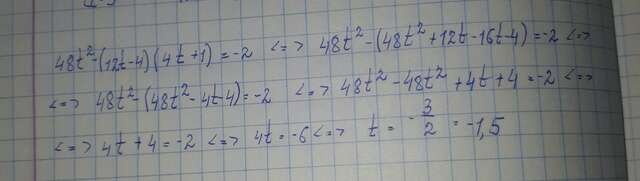 48t²-(12t-4)(4t+1)=-2 <=> 48t²-(48t²+12t-16t-4)=-2 <=>
<=> 48t²-(48t²-4t-4)=-2 <=> 48t²-48t²+4t+4=-2 <=>
<=> 4t+4=-2 <=> 4t=-6 <=> t=-3/2=-1,5